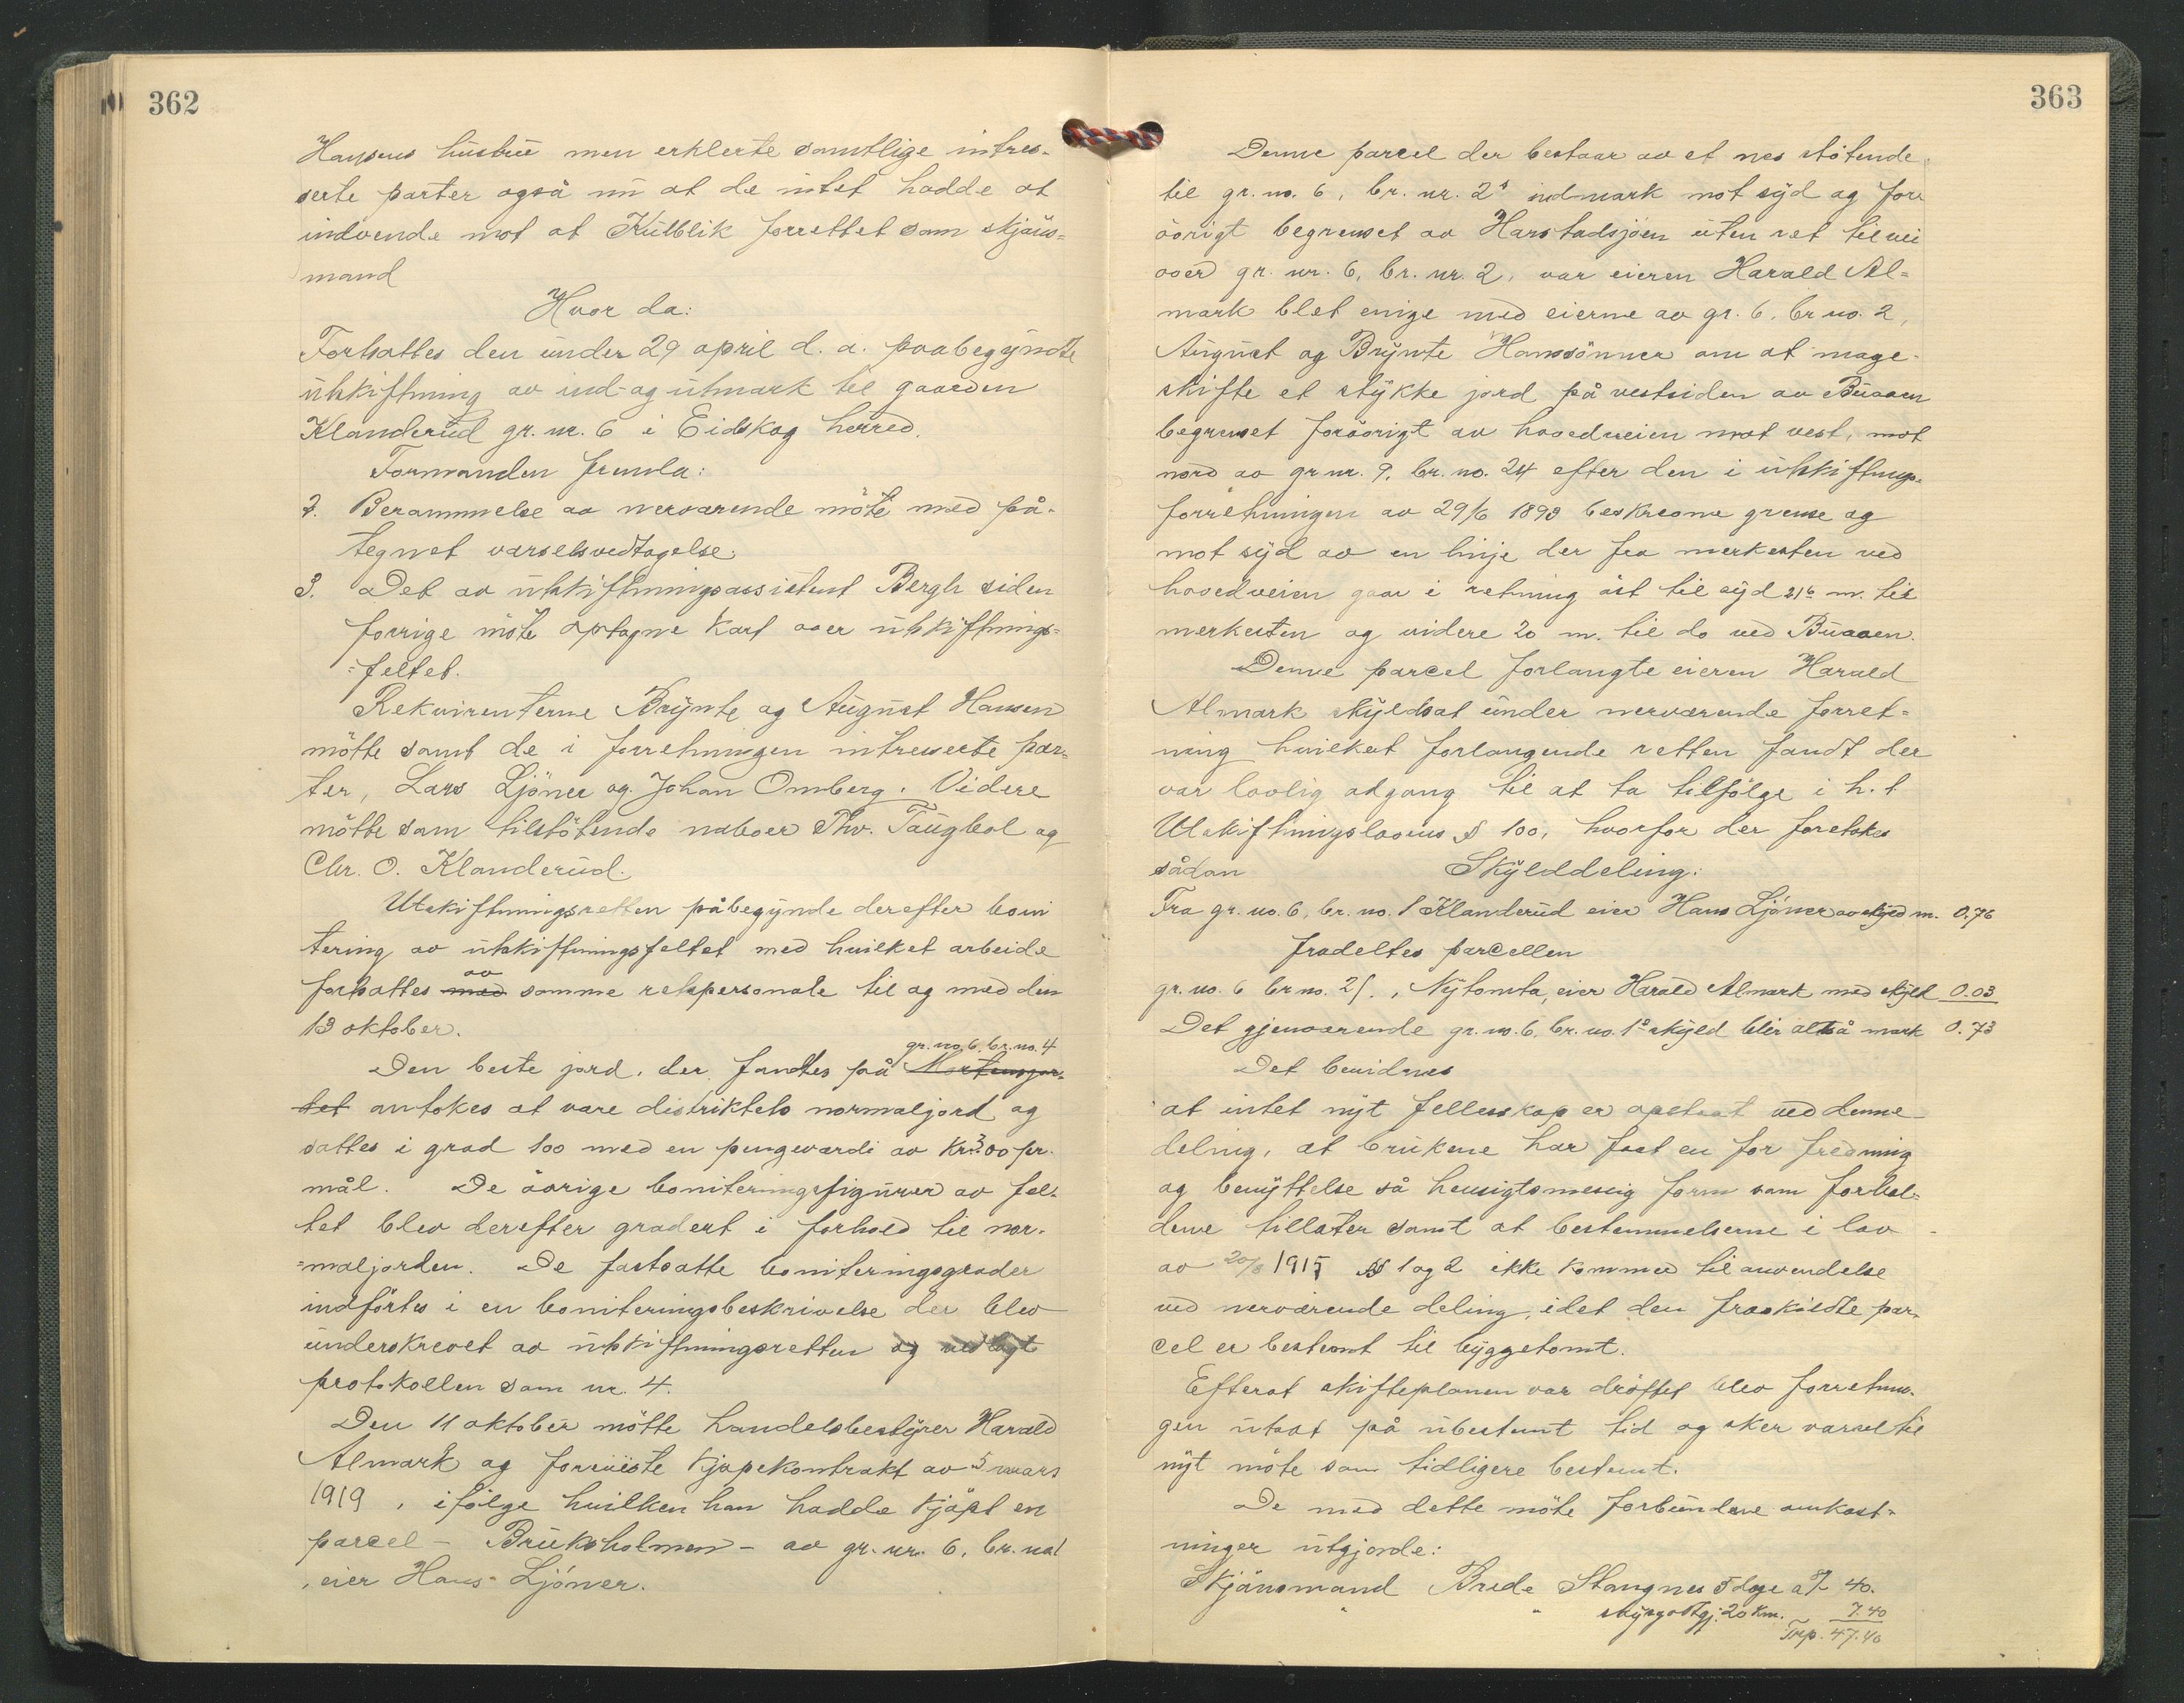 362
Hansens hustru men erklerte samtlige intres-
serte parter også nu at de intet hadde at
indvende mot at Kulblik forrettet som skjøns-
mand
Hvor da:
Fortsattes den under 29 april d. a. paabegyndte
utskiftning av ind- og utmark til gaarden
Klanderud gr. nr. 6 i Eidskog herred.
Formanden fremla:
2. Berammelse av nerværende möte med på-
tegnet varselsvedtagelse.
3. Det av utskiftningsassistent Bergh siden
forrige möte optagne kart over utskiftnings-
feltet.
Rekvirenterne Brynte og August Hansen
mötte samt de i forretningen intresserte par-
ter, Lars Ljöner og Johan Omberg. Videre
mötte som tilstötende naboer Thv. Taugbol og
Chr. O. Klanderud.
Utskiftningsretten påbegynde derefter boni
tering av utskiftningsfeltet med hvilket arbeide
fortsattes med av samme retspersonale til og med den
13 oktober.
gr. no. 6. br. no. 4
Den beste jord, der fandtes på
tet antokes at være distriktets normaljord og
sattes i grad 100 med en pengeværdi av Kr. 300 pr.
mål. De övrige boniteringsfigurer av fel-
tet blev derefter gradert i forhold til nor-
=maljorden. De fastsatte boniteringsgrader
indförtes i en boniteringsbeskrivelse der blev
underskrevet av utskiftningsretten og vedlagt
protokollen som nr. 4.
Den 11 oktober mötte handelsbestyrer Harald
Almark og foreviste kjöpekontrakt av 5 mars
1919, ifölge hvilken han hadde kjöpt en
parcel - Bruksholmen - av gr. nr. 6, br. no 1
, eier Hans Ljöner.
363
Denne parcel der bestaar av et nes stötende
til gr. no. 6, br. nr. 2s indmark mot syd og for
övrigt begrenset av Harstadsjöen uten ret til vei
over gr. nr. 6, br. nr. 2, var eieren Harald Al=
mark blet enige med eierne av gr. 6, br no. 2,
August og Brynte Hanssönner om at mage-
skifte et stykke jord på vestsiden av Buaaen
begrenset forövrigt av hovedveien mot vest, mot
nord av gr nr. 9, br. no. 24 efter den i utskiftnings-
forretningen av 29/6 1898 beskrevne grense og
mot syd av en linje der fra merkesten ved
hovedveien gaar i retning öst til syd 216 m. til
merkesten og videre 20 m. til do ved Buaaen.
Denne parcel forlangte eieren Harald
Almark skyldsat under nerværende forret=
ning hvilket forlangende retten fandt der
var lovlig adgang til at ta tilfölge i h. t
Utskiftningslovens § 100, hvorfor der foretokes
sådan Skylddeling:
Fra gr. no. 6, br. no. 1 Klanderud eier Hans Ljöner av skyld m. 0.76
fradeltes parcellen
gr. no. 6 br no. 21., Nytomta, eier Harald Almark med skyld 0.03
Det gjenværende gr. no. 6. br. no. 1s skyld blir altså mark 0.73
Det bevidnes
at intet nyt fellesskap er opstaat ved denne
deling, at brukene har faat en for fredning
og benyttelse så hensigtsmessig form som forhol=
dene tillater samt at bestemmelserne i lov
av 20/8 1915 §§ 1 og 2 ikke kommer til anvendelse
ved nerværende deling, idet den fraskildte par-
cel er bestemt til byggetomt.
Efterat skifteplanen var dröftet blev forretnin-
gen utsat på ubestemt tid og sker varsel til
nyt möte som tidligere bestemt.
De med dette möte forbundne omkost-
ninger utgjorde:
Skjönsmand Brede Stangnes 5 dage a 8/- 40.
" " skysgodtgj. 20 km. 7.40
Trp. 47.40